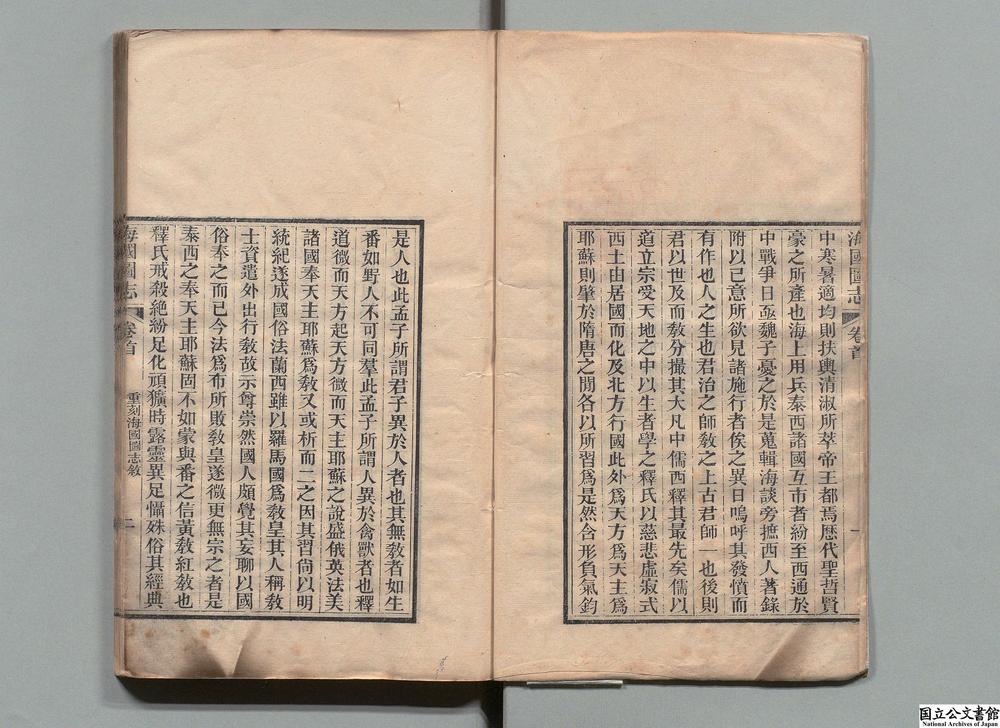 海國圖志
卷首
一
中寒暑適均則扶輿清淑所萃帝王都焉歷代聖哲賢
豪之所產也海上用兵泰西諸國互市者紛至西通於
中戰爭日亟魏子憂之於是蒐輯海談旁摭西人著錄
附以己意所欲見諸施行者俟之異日嗚呼其發憤而
有作也人之生也君治之師敎之上古君師一也後則
君以世及而敎分撮其大凡中儒西釋其最先矣儒以
道立宗受天地之中以生者學之釋氏以慈悲虛寂式
西土由居國而化及北方行國此外爲天方爲天主爲
耶蘇則肇於隋唐之間各以所習爲是然含形負氣鈞
是人也此孟子所謂君子異於人者也其無敎者如生
番如野人不可同羣此孟子所謂人異於禽獸者也釋
道微而天方起天方微而天主耶蘇之說盛俄英法美
諸國奉天主耶蘇爲敎又或析而二之因其習尙以明
統紀遂成國俗法蘭西雖以羅馬國爲敎皇其人稱敎
士資遣外出行敎故示尊崇然國人頗覺其妄聊以國
俗奉之而已今法爲布所敗敎皇遂微更無宗之者是
泰西之奉天主耶蘇固不如蒙與番之信黃敎紅敎也
釋氏戒殺絕紛足化頑獷時露靈異足懾殊俗其經典
海國圖志
卷首
重刻海國圖志敘
二
国立公文書館
National Archives of Japan